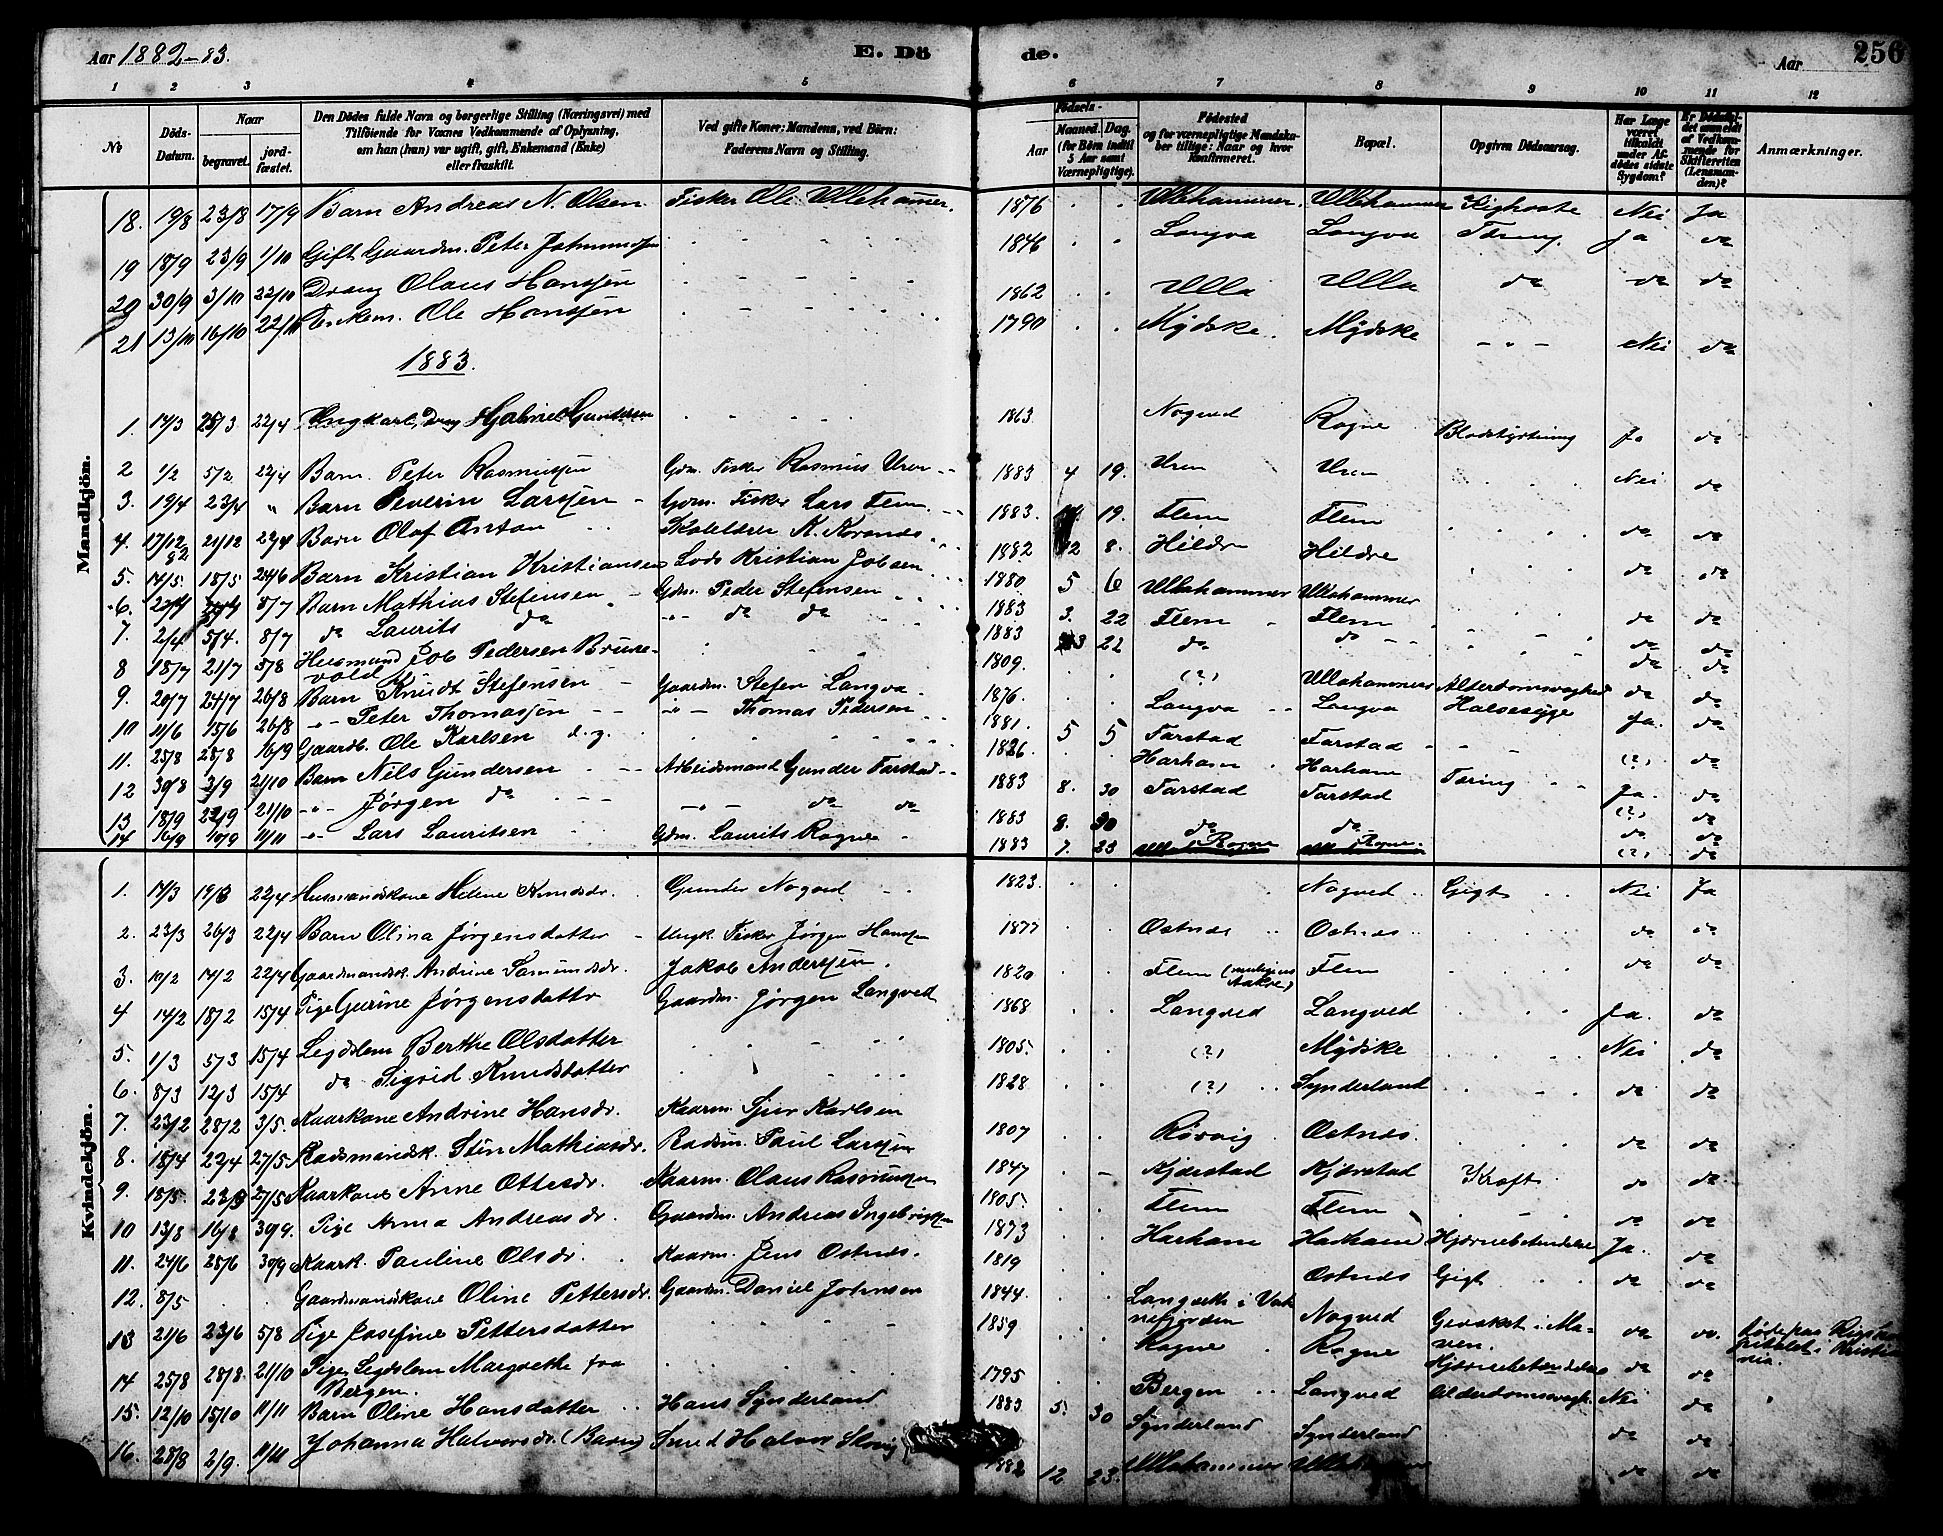 Aar 1882-83. E. Dö de. Aar 256
1 2 3 4 5 6 7 8 9 10 11 12
№ Döds-Datum. Naar begravet. jord-fæstet. Den Dödes fulde Navn og borgerlige Stilling (Næringsvei) med Tilföiende for Voxnes Vedkommende af Oplysning, om han (hun) var ugift, gift, Enkemand (Enke) eller fraskilt. Ved gifte Koner: Mandens, ved Börn: Faderens Navn og Stilling. Födsels- Aar Maaned. Dag. (for Börn indtil 5 Aar samt Værnepligtige). Födested og for værnepligtige Mandskaber tillige: Naar og hvor Konfirmeret. Bopæl. Opgiven Dödsaarsag. Har Læge været tilkaldt under Afdödes sidste Sygdom? Er Dödsfaldet anmeldt af Vedkommende for Skifteretten (Lensmanden)? Anmærkninger.
Mandkjön.
18. 19/8 23/8 17/9 Barn Andreas N. Olsen Fisker Ole Ullahammer. 1876 Ullahammer. Ullahammer Kighoste Nei Ja
19 18/9 23/9 1/10 Gift Gaardm. Peter 1846 Longva Longva Tæring Ja do
20 30/9 3/10 22/10 Dreng Olaus Hanssen 1862 Ulla Ulla do do do
21 13/10 16/10 22/10 Enkem. Ole Hanssen 1790 Mÿdske. Mÿdske - " - Nei do
1883.
1. 14/3 25/3 22/4 Ungkarl, Dreng Gabriel Gundersen 1863 Nogved Rogne Blodstyrtning Ja do
2 1/2 5/2 22/4 Barn Peter Rasmussen Gdm. Fisker Rasmus Uren 1883 4 19. Uren Uren Nei do
3. 19/4 23/4 " Barn Severin Larssen Gdm. Fisker Lars Flem 1883. 19. Flem Flem do do
4. 17/12 82 21/12 22/4 Barn Olaf Anton Skolelærer K. 1882 12 8. Hildre Hildre do do
5. 14/5 18/5 24/6 Barn Kristian Kristiansen Lods Kristian Jobsen 1880 5 6 Ullahammer Ullahammer do do
6. 8/7 Barn Mathias Stefensen Gdm. Peder Stefensen 1883 3. 22 Flem Flem do do
7. 2/4 5/4. 8/7 do Laurits do " do do 1883 3 22 do do do do
8 18/7 21/7 5/8 Husmand Job Pedersen Brunevold 1809. (?) Ullahammer Alderdomssvaghed do do
9. 20/7 24/7 26/8 Barn Knudt Stefensen Gaardm. Stefen Longva 1876. Longva Longva Halsesyge Ja. do
10 11/6 15/6 26/8 " Peter Thomassen " Thomas Pedersen 1881. 5 5 Farstad Farstad (?) do
11. 25/8 28/8 16/9 Gaardb. Ole Karlsen 1826. Harham Harham Tæring Ja. do
12 30/8 2/9 21/10 Barn Nils Gundersen Arbeidsmand Gunder Farstad 1883 8. 30 Farstad Farstad (?) do
13 18/9 22/9 21/10 " Jørgen do " do do 1883 8. 30 do do do do
14 16/9 19/9 11/11 " Lars Lauritsen Gdm. Laurits Rogne 1883 7. 23 Rogne Rogne. (?) do
Kvindekjön.
1. 14/3 19/3 22/4 Husmandskone Helene Knudsdr. Gunder Nogved 1823. Nogved Gigt Nei Ja
2. 23/3 26/3 22/4 Barn Olina Jørgensdatter Ungk. Fisker Jørgen Hanssen 1877 Ostnes Ostnes do do
3. 10/2 14/2 22/4 Gaardmandsk. Andrine Samundsdr. Jakob Anderssen. 1820 Flem (muligens Aakre) Flem do do
4 14/2 18/2 15/4 Pige Gurine Jørgensdatter Gaardm. Jørgen Longved 1868 Longved Longved Ja. do
5. 1/3 5/3 15/4 Legdslem Berthe Olsdatter 1805. (?) Mÿdske Nei do
6. 8/3 12/3 15/4 do Sigrid Knudsdatter 1828 (?) Synderland do do
7. 23/2 28/2 3/5. Kaarkone Andrine Hansdr. Kaarm. Sjur Karlsen 1807 Rørvig Ostnes do do
8. 18/4 22/4 27/5 Radsmandsk. Stine Mathiasdr. Radsm. Paul Larssen 1847 Kjærstad Kjærstad Kræft do do
9. 18/5. 27/5 Kaarkone Anne Ottesdr. Kaarm. Olaus Rasmussen 1805. Flem Flem do do
10 13/8 16/8 30/9. Pige Anna Andreasdr. Gaardm. Andreas Ingebrigtsen 1873 Harham Harham Hjernebetændelse Ja. do
11. 24/6 28/6 30/9 Kaark. Pauline Olsdr. Kaarm. Jens Ostnes. 1819 Ostnes Gigt do do
12. 8/5 Gaardmandskone Oline Pettersdr. Gaardm. Daniel Johnsen 1844. Nogved do do.
13 21/6 23/6 5/8 Pige Josefine Pettersdatter 1859 Rogne Rogne Hjernebetændelse do do
14 25/8 28/8. 21/10 Pige, Legdslem Margrethe fra Bergen. 1795 Bergen Longved Alderdomssvagh. Nei do
15. 12/10 15/10 11/11 Barn Oline Hansdatter Hans Synderland 1883 5. 30 Synderland Synderland do do
16. 28/8 2/9. 11/11 Johanna Halvorsdr. (Barn) Smed Halvor 1882 12 23. Ullahammer do do